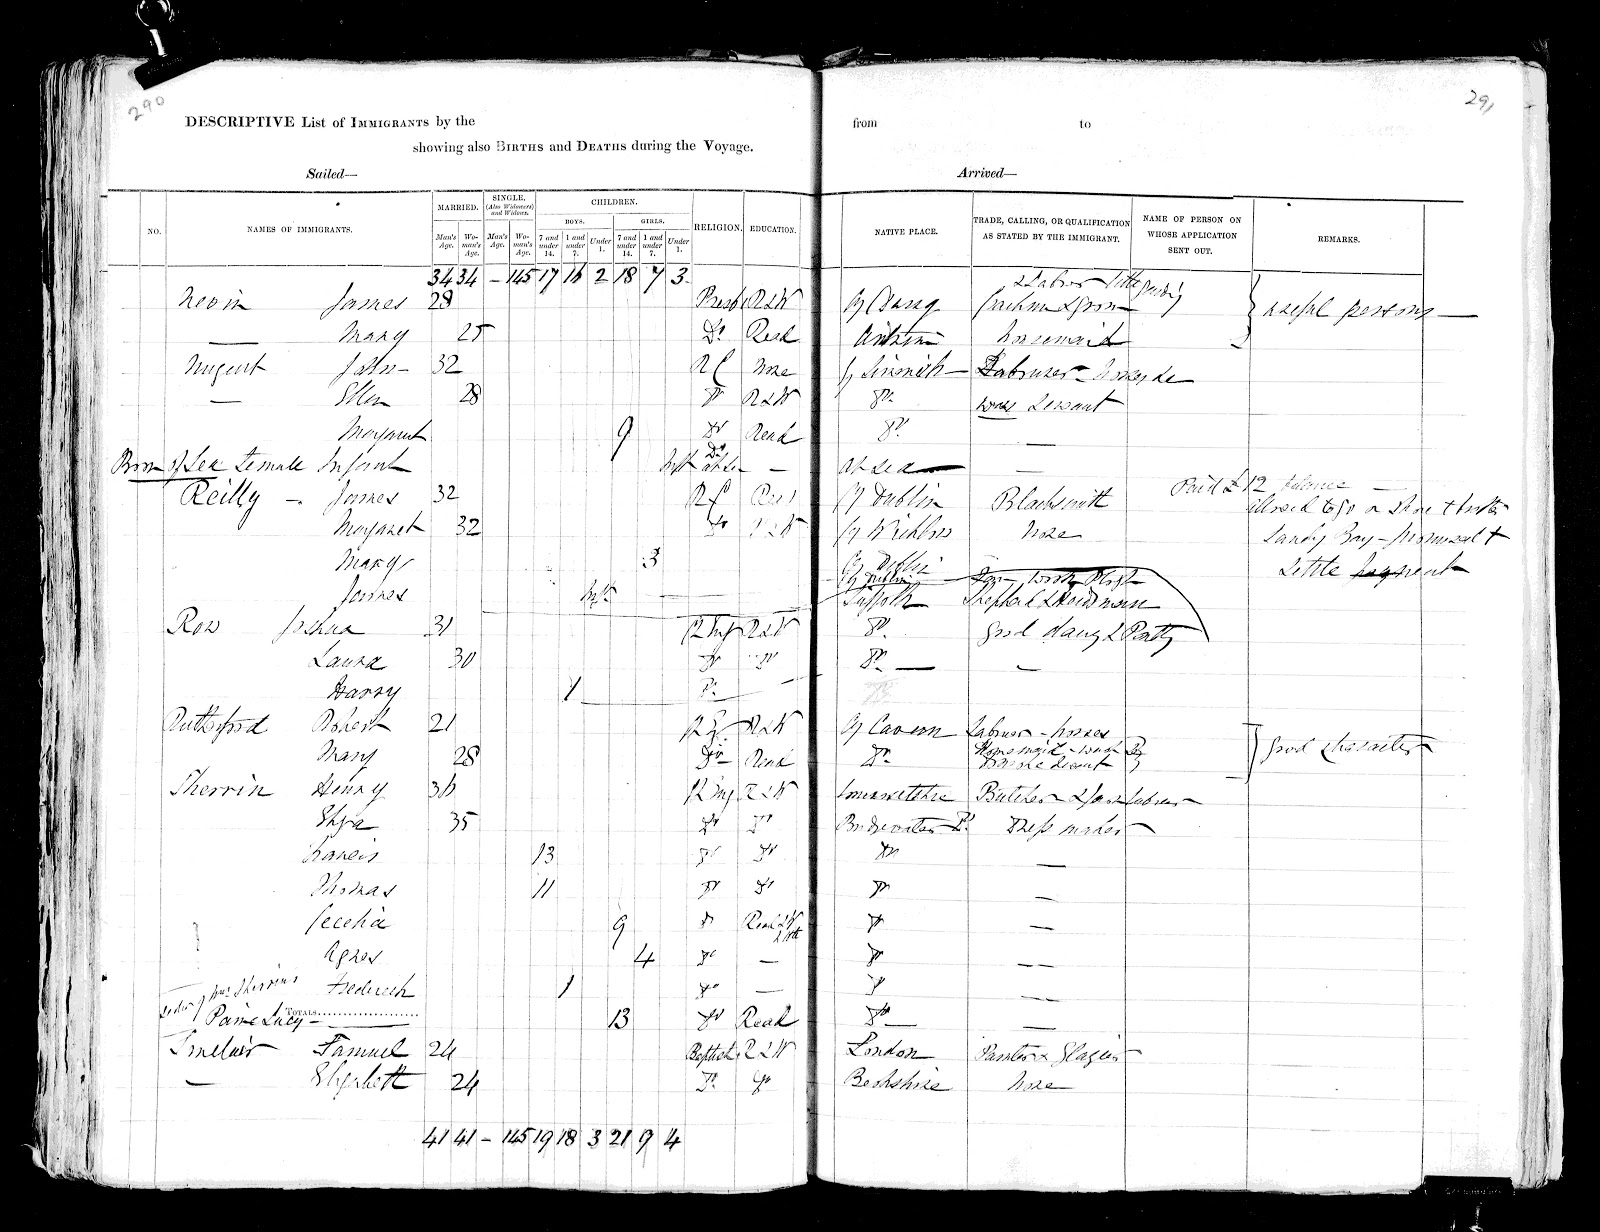 290
291
DESCRIPTIVE List of IMMIGRANTS by the from to
showing also BIRTHS and DEATHS during the Voyage.
Sailed— Arrived—
NO. NAMES OF IMMIGRANTS. MARRIED. Man's Age. Wo-man's Age. SINGLE, (Also Widowers) and Widows. Man's Age. Wo-man's Age. CHILDREN. BOYS. 7 and under 14. 1 and under 7. Under 1. GIRLS. 7 and under 14. 1 and under 7. Under 1. RELIGION. EDUCATION. NATIVE PLACE. TRADE, CALLING, OR QUALIFICATION AS STATED BY THE IMMIGRANT. NAME OF PERSON ON WHOSE APPLICATION SENT OUT. REMARKS.
34 34 – 145 17 16 2 18 7 3
Nevin James 28 Presb R&W useful persons —
— Mary 25 Do Read Antrim housemaid
Nugent John 32 RC None Labourer
— Ellen 28 Do R&W Do Servant
Margaret 9 Do Read Do —
Born at Sea Female Infant Inft Do — at Sea —
Reilly – James 32 RC Cy Dublin Blacksmith Paid £12
Margaret 32 Do R&W none Sandy Bay
Mary 3 Cy Dublin little
James Inft — Cy Dublin
Suffolk Shepherd &
Row Joshua 31 R&W Do good
Laura 30 Do Do Do — –
Harry 1 Do
Rutherford Robert 21 R&W Cy Cavan Labourer – horses
Mary 28 Do Read Do Housemaid good character
Sherrin Henry 36 R&W Somersetshire Butcher & farm labourer
Eliza 35 Do Do Bridgewater Do Dress maker
Francis 13 Do Do Do —
Thomas 11 Do Do Do —
Cecelia 9 Do Read Do —
Agnes 4 Do — Do —
Frederick 1 Do — Do —
Mrs Sherrins
TOTALS
Paine Lucy – — 13 Do Read Do — —
Sinclair Samuel 24 Baptist R&W London Painter & Glazier
— Elizabeth 24 Do Do Berkshire none
41 41 – 145 19 18 3 21 9 4